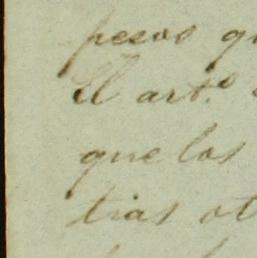 pesos qu
El art.º
que los
trias ot